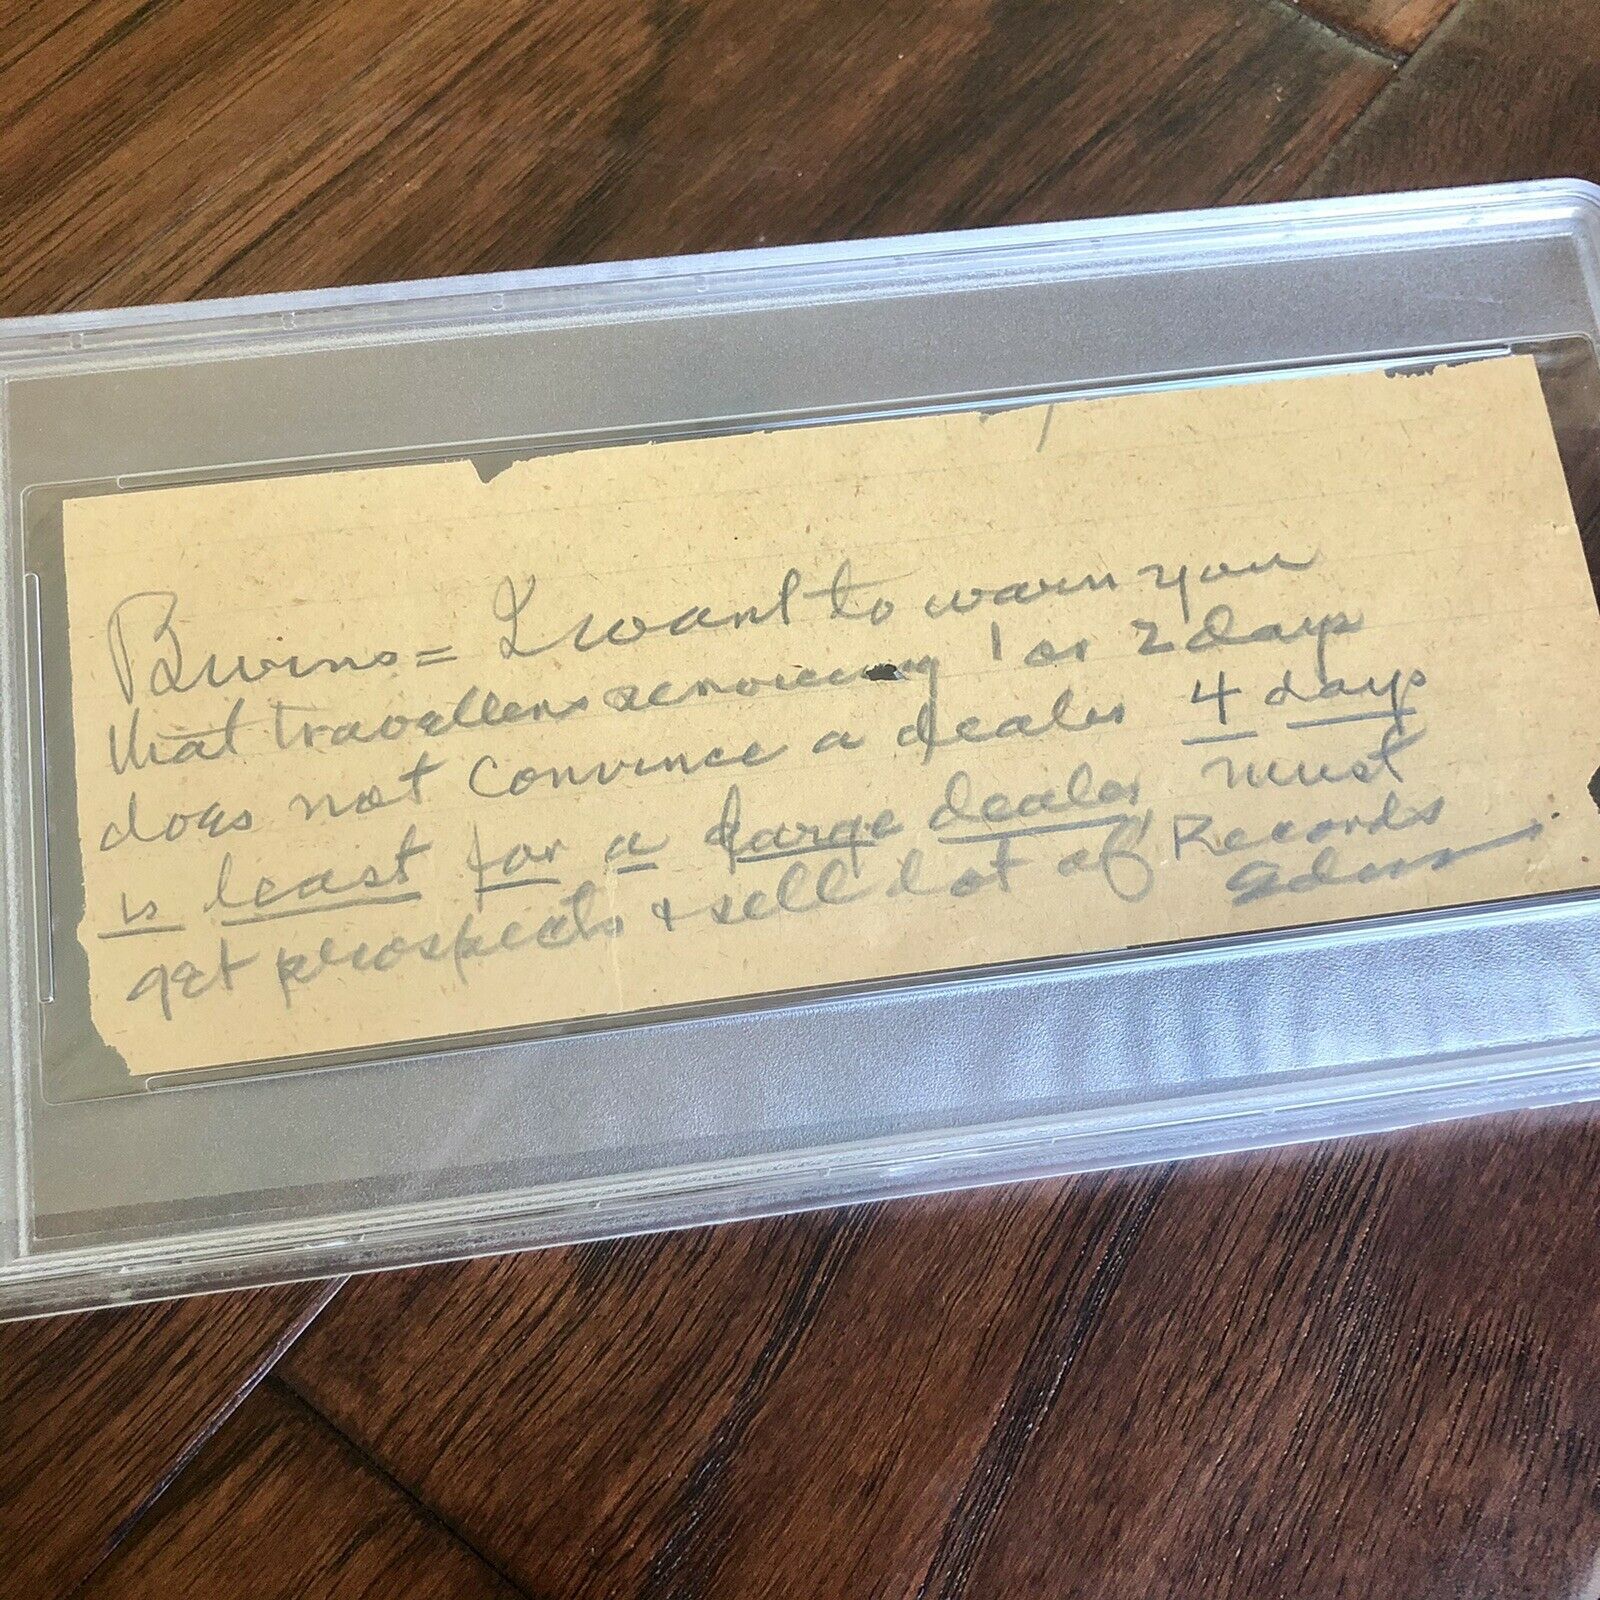 Burns = I want to warn you
that travellers servicing 1 or 2 days
does not convince a dealer 4 days
is least for a large dealer, must
get prospects & sell lot of Records